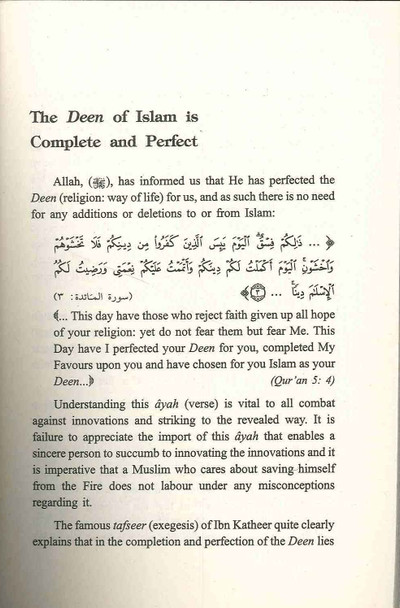 The Deen of Islam is
Complete and Perfect
Allah, (ﷻ), has informed us that He has perfected the
Deen (religion: way of life) for us, and as such there is no need
for any additions or deletions to or from Islam:
﴿ ... ذَٰلِكُمْ فِسْقٌ ۗ ٱلْيَوْمَ يَئِسَ ٱلَّذِينَ كَفَرُوا۟ مِن دِينِكُمْ فَلَا تَخْشَوْهُمْ
وَٱخْشَوْنِ ۚ ٱلْيَوْمَ أَكْمَلْتُ لَكُمْ دِينَكُمْ وَأَتْمَمْتُ عَلَيْكُمْ نِعْمَتِى وَرَضِيتُ لَكُمُ
ٱلْإِسْلَٰمَ دِينًا ۚ ... ﴿٣﴾ ﴾ (سورة المائدة: ٣)
﴾... This day have those who reject faith given up all hope
of your religion: yet do not fear them but fear Me. This
Day have I perfected your Deen for you, completed My
Favours upon you and have chosen for you Islam as your
Deen...﴿ (Qur'an 5: 4)
Understanding this âyah (verse) is vital to all combat
against innovations and striking to the revealed way. It is
failure to appreciate the import of this âyah that enables a
sincere person to succumb to innovating the innovations and it
is imperative that a Muslim who cares about saving himself
from the Fire does not labour under any misconceptions
regarding it.
The famous tafseer (exegesis) of Ibn Katheer quite clearly
explains that in the completion and perfection of the Deen lies